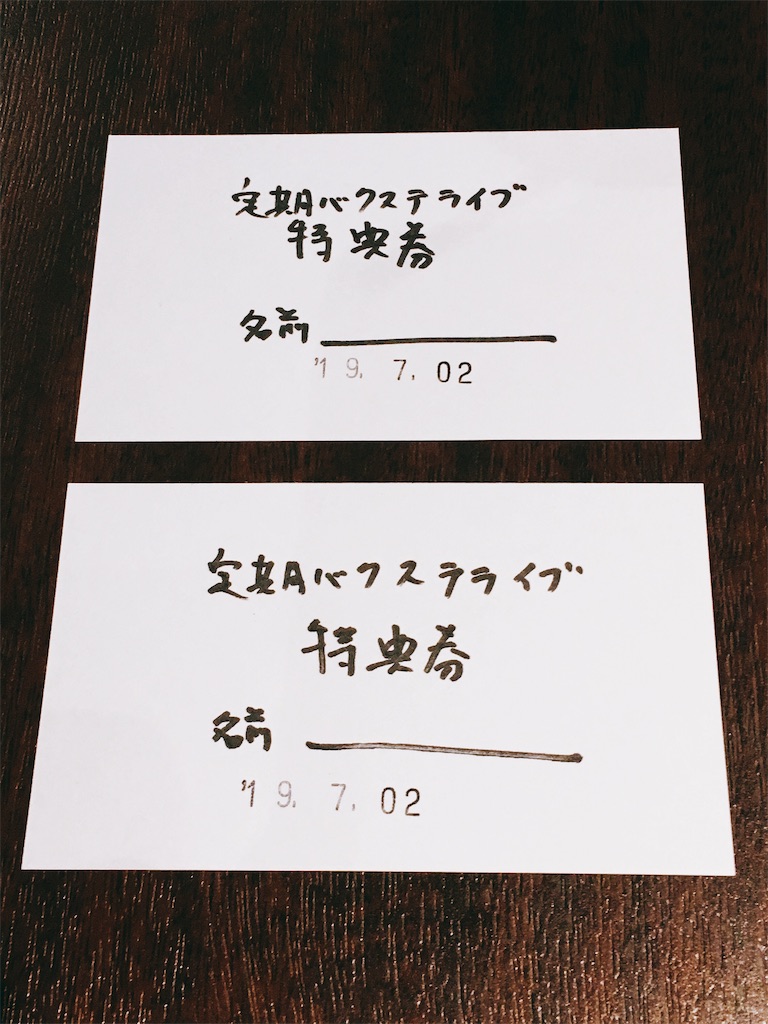 定期バクステライブ
特典券
名前
'19.7.02
定期バクステライブ
特典券
名前
'19.7.02